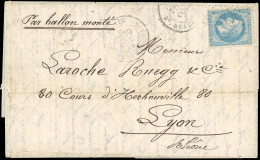 Par ballon monté
Monsieur
Laroche Ruegg & Cie
80 Cours d'Herbouville 80
Lyon
Rhône